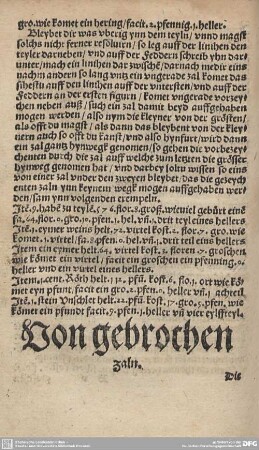 gro. wie komet ein hering / facit. 2. pfennig. 1. heller.
Bleybet dir was vbrig ynn dem teyln / vnnd magst
solchs nich: ferner resoluirn / so leg auff der linihen den
teyler darneben / vnd auff der Feddern schreib yhn dar
vnter / mach ein linihen dar zwischē / darnach mehr eins
nach m andern so lang vntz ein vngerade zal komet das
subesstu auff den linihen auff der vntersten / vnd auff der
Feddern an der ersten figurn / komet vngerade vorzey
chen neben auß / such ein zal damit beyd auffgehaben
mogen werden / also nym die kleyner von der grösten /
als offt du magst / als dann das bleybent von der kleynern
auch so offt du kanst / vnd also hynfurt / wird dann
ein zal gantz hynwegk genomen / so gehen die vorbezey
chenten durch die zal auff welche zum letzten die grösser
hynweg genomen hat / vnd darbey soltu wissen so eins
von einer zal vnder den zweyen bleybet / das die gezeych
enten zaln ynn keynem wegk mogen auffgehaben wer
den / sam ynn volgenden exempeln.
Itē. 9. habē zu teylē. 5 7 6. flor. 8. groß. wieuiel gebürt eine
fa. 64. flor. 0. gro. 0. pfen. 1. hel. vñ. 1. drit teyl eines hellers
Itē. 1. eymer weins helt. 72. virtel kost. 2. flor. 7. gro. wie
komet. 1. virtel / fa. 8. pfen. 0. hel. vñ. 1. drit teil eins hellers
Item ein eymer helt. 64. virtel kost. 2. floren. 17. groschen
wie kömet ein viertel / facit ein groschen ein pfenning. 0.
heller vnd ein virtel eines hellers.
Item. 1. cent. Röth helt. 112. pfū. kost. 6. flo. 1. ort wie kö
met eyn pfunt. facit ein gro. 2. pfen. 0. heller vñ. 1 achteil
Itē. 1. stein Vnschlet helt. 22. pfū. kost. 17. gro. 5. pfen. wie
kömet ein pfundt facit. 9. pfen. 1. heller vñ vier eylfftreyl.
Von gebrochen
zaln.
Wie